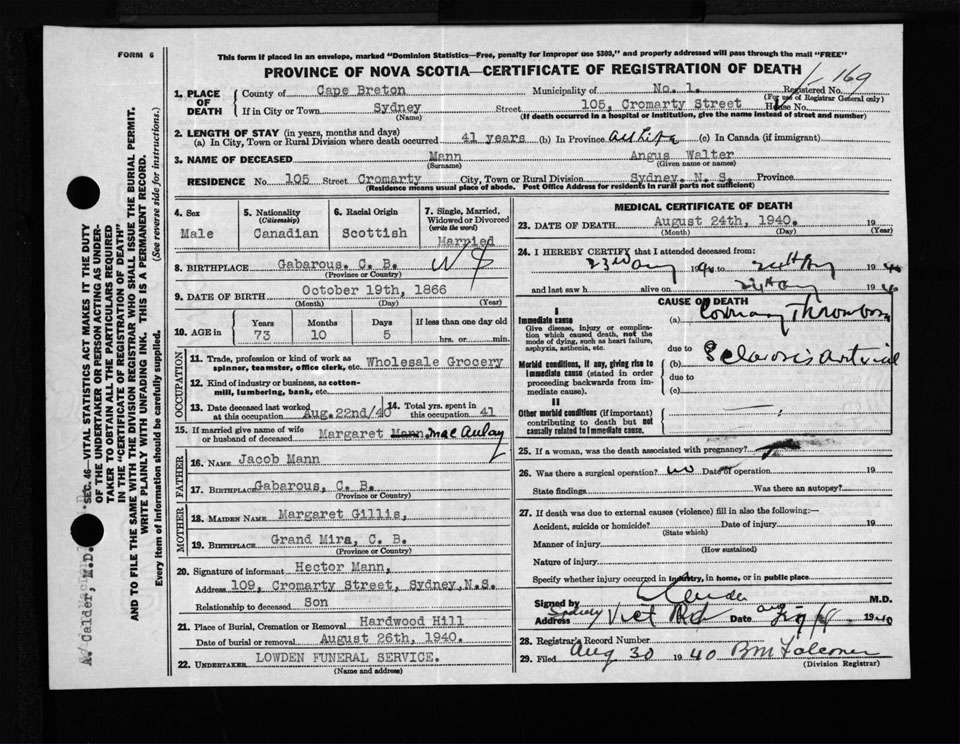 FORM 6
This form if placed in an envelope, marked "Dominion Statistics—Free, penalty for improper use $300," and properly addressed will pass through the mail "FREE"
PROVINCE OF NOVA SCOTIA—CERTIFICATE OF REGISTRATION OF DEATH
1. PLACE OF DEATH
County of Cape Breton Municipality of No. 1. Registered No. 169
(For use of Registrar General only)
If in City or Town Sydney Street 105, Cromarty Street House No.
(Name) (If death occurred in a hospital or institution, give the name instead of street and number)
2. LENGTH OF STAY (in years, months and days)
(a) In City, Town or Rural Division where death occurred 41 years (b) In Province all life (c) In Canada (if immigrant)
3. NAME OF DECEASED Mann Angus Walter
(Surname) (Given name or names)
RESIDENCE No. 105 Street Cromarty City, Town or Rural Division Sydney, N. S. Province
(Residence means usual place of abode. Post Office Address for residents in rural parts not sufficient)
4. Sex Male
5. Nationality (Citizenship) Canadian
6. Racial Origin Scottish
7. Single, Married, Widowed or Divorced (write the word) Married
8. BIRTHPLACE Gabarous. C. B.
(Province or Country)
9. DATE OF BIRTH October 19th, 1866
(Month) (Day) (Year)
10. AGE in Years Months Days If less than one day old
73 10 5 hrs. or min.
OCCUPATION
11. Trade, profession or kind of work as spinner, teamster, office clerk, etc. Wholesale Grocery
12. Kind of industry or business, as cotton-mill, lumbering, bank, etc.
13. Date deceased last worked at this occupation Aug. 22nd/40
14. Total yrs. spent in this occupation 41
15. If married give name of wife or husband of deceased Margaret Mann, MacAulay
FATHER
16. NAME Jacob Mann
17. BIRTHPLACE Gabarous, C. B.
(Province or Country)
MOTHER
18. MAIDEN NAME Margaret Gillis,
19. BIRTHPLACE Grand Mira, C. B.
(Province or Country)
20. Signature of informant Hector Mann,
Address 109, Cromarty Street, Sydney, N.S.
Relationship to deceased Son
21. Place of Burial, Cremation or Removal Hardwood Hill
Date of burial or removal August 26th, 1940.
22. UNDERTAKER LOWDEN FUNERAL SERVICE.
(Name and address)
MEDICAL CERTIFICATE OF DEATH
23. DATE OF DEATH August 24th, 1940. 19
(Month) (Day) (Year)
24. I HEREBY CERTIFY that I attended deceased from:
23rd Aug 1940 to 24th Aug 1940
and last saw h alive on 24th Aug 1940
CAUSE OF DEATH
I
Immediate cause
Give disease, injury or complication which caused death, not the mode of dying, such as heart failure, asphyxia, asthenia, etc.
(a) Coronary Thrombosis
due to
Morbid conditions, if any, giving rise to immediate cause (stated in order proceeding backwards from immediate cause).
(b) Sclerosis arterial
due to
(c)
II
Other morbid conditions (if important) contributing to death but not causally related to immediate cause.
25. If a woman, was the death associated with pregnancy?
26. Was there a surgical operation? no Date of operation 19
State findings Was there an autopsy?
27. If death was due to external causes (violence) fill in also the following:—
Accident, suicide or homicide? Date of injury 19
(State which)
Manner of injury
(How sustained)
Nature of injury
Specify whether injury occurred in industry, in home, or in public place
Signed by M.D.
Address Sydney Date Aug 1940
28. Registrar's Record Number
29. Filed Aug 30 1940 BM Falconer
(Division Registrar)
SEC. 46—VITAL STATISTICS ACT MAKES IT THE DUTY OF THE UNDERTAKER OR PERSON ACTING AS UNDERTAKER TO OBTAIN ALL THE PARTICULARS REQUIRED IN THE "CERTIFICATE OF REGISTRATION OF DEATH" AND TO FILE THE SAME WITH THE DIVISION REGISTRAR WHO SHALL ISSUE THE BURIAL PERMIT.
WRITE PLAINLY WITH UNFADING INK. THIS IS A PERMANENT RECORD.
Every item of information should be carefully supplied. (See reverse side for instructions.)
Calder, M.D.